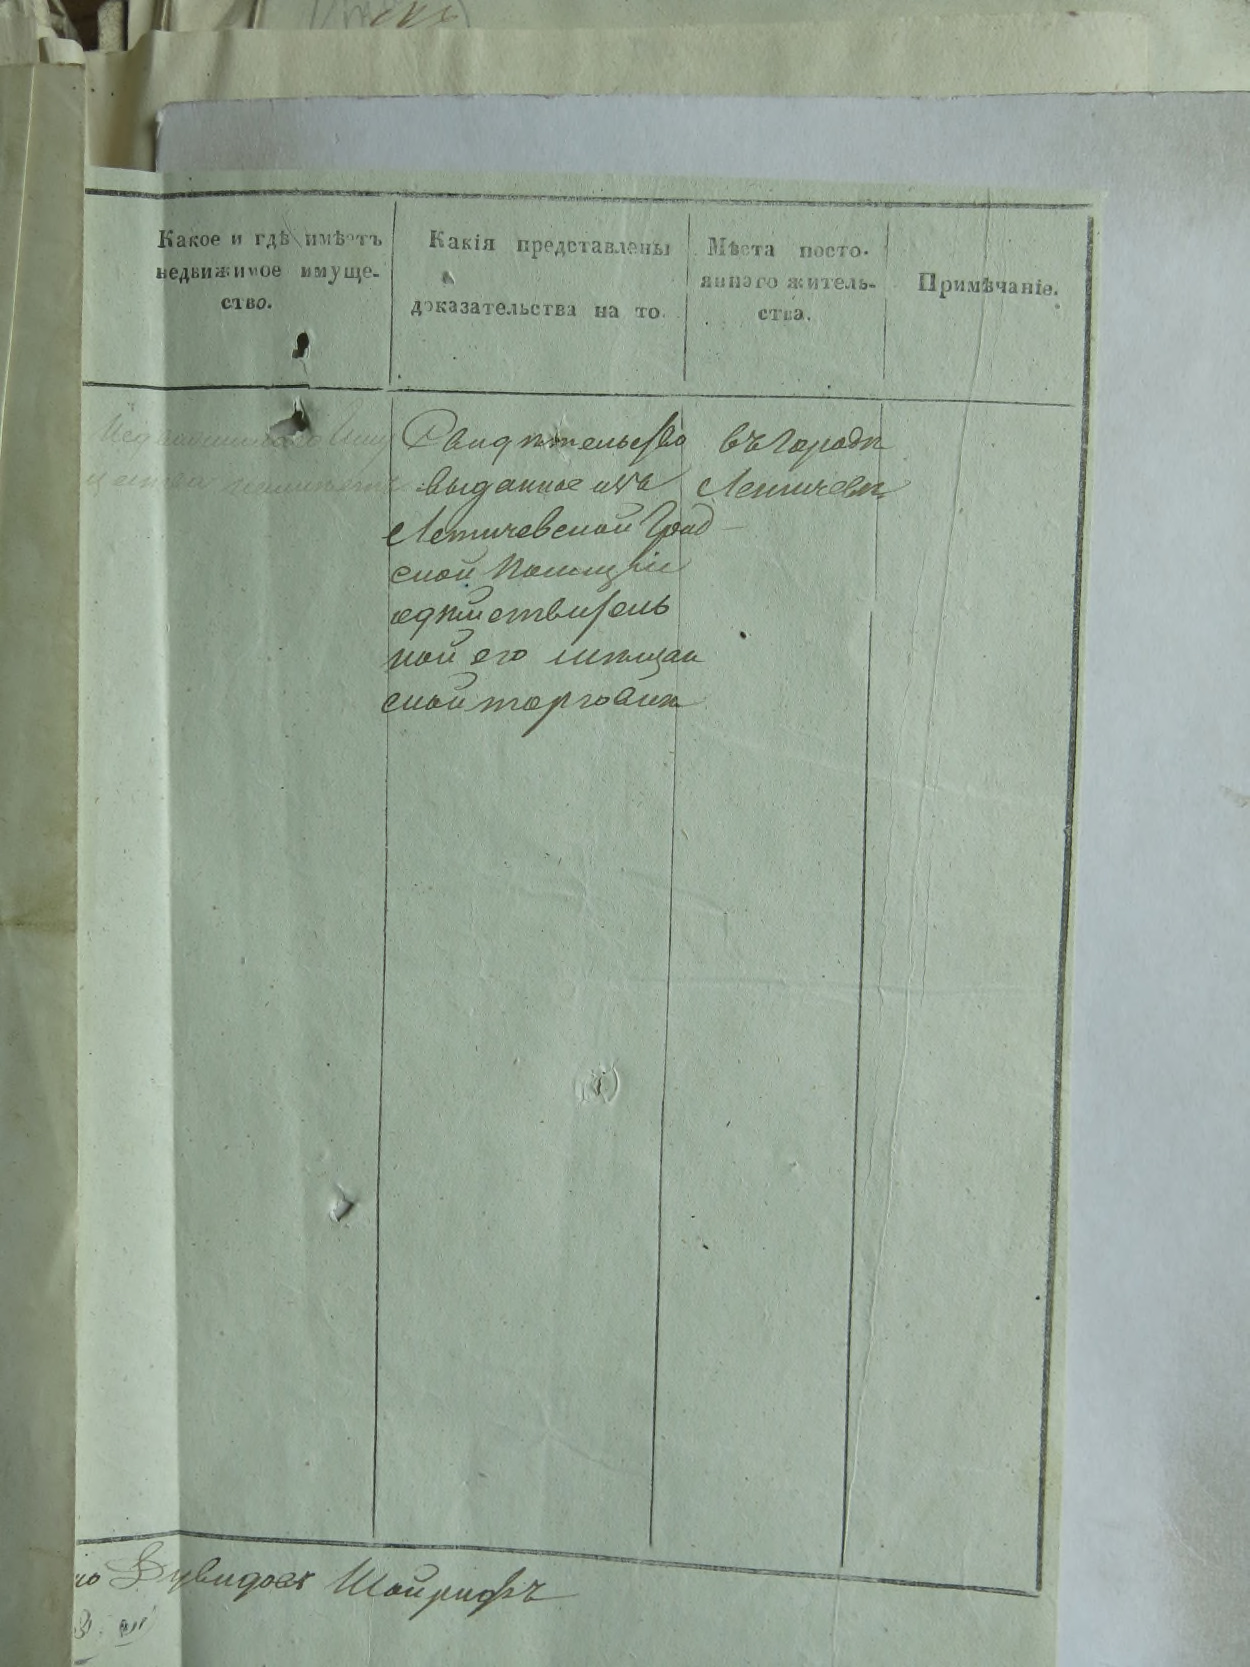 Какое и гдѣ имѣетъ
недвижимое имуще-
ство.
Какія представлены
доказательства на то.
Мѣста посто-
яннаго житель-
ства.
Примѣчаніе.
Недвижимаго Иму
щества неимѣетъ
Свидѣтельство
выданное изъ
Летичевской Град
ской Полиціи
одѣйствитель
ной его мѣщан
ской торговлѣ
въ Городѣ
Летичевѣ